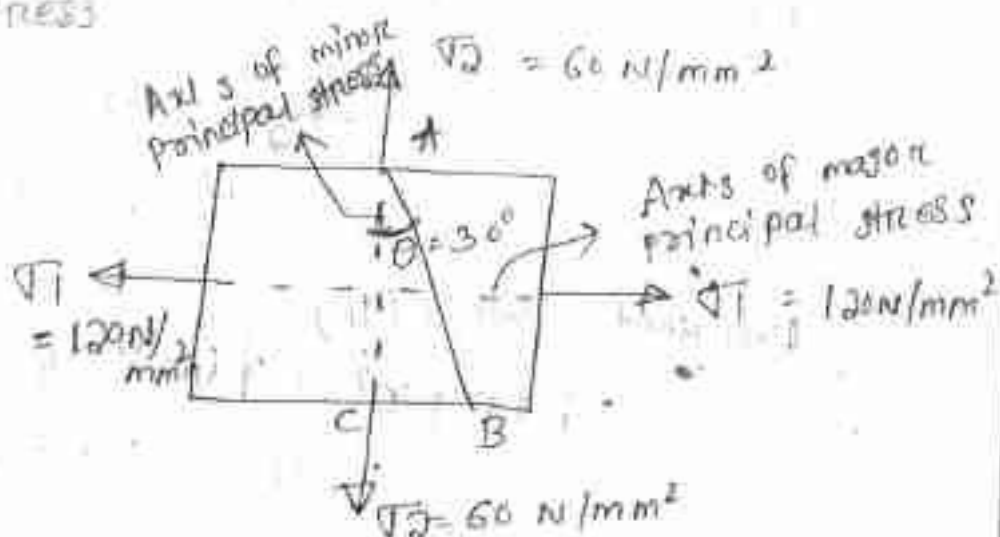 RESS
Axis of minor
principal stress
σ2 = 60 N/mm2
A
Axis of major
principal stress
θ = 30°
σ1
= 120N/
mm2
σ1 = 120N/mm2
C
B
σ2 = 60 N/mm2